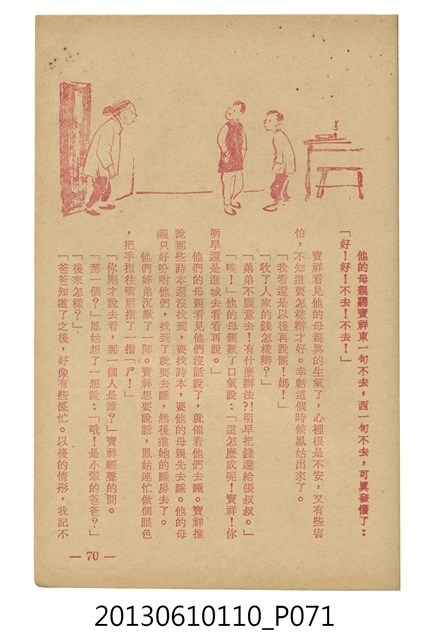 他的母親聽寶祥東一句不去，西一句不去，可眞發惱了：
「好！好！不去！不去！」
寶祥看見他的母親眞的生氣了，心裡很是不安，又有些害
怕，不知道要怎樣辦才好。幸虧這個時候鳳姑出來了。
「我看還是以後再說罷！媽！」
「收了人家的錢怎樣辦？」
「弟弟不願意去！有什麼辦法？！明早把錢還給張叔叔。」
「唉！」他的母親歎了口氣說：「這怎麼成呢！寶祥！你
明早還是進城去看看再說。」
他們的母親看見他們沒話說了，就催着他們去睡。寶祥推
說那些詩本還沒找到，要找詩本，要他的母親先去睡。他的母
親只好吩咐他們，找到了就要去睡，然後進她的睡房去了。
他們姊弟沉默了一陣。寶祥想要說話，鳳姑連忙做個眼色
，把手指往嘴唇指了一指「尸！」
「你剛才說去看，那一個人是誰？」寶祥輕聲的問。
「那一個？」鳳姑想了一想說：「哦！是小翠的爸爸？」
「後來怎樣？」
「爸爸知道了之後，好像有些慌忙。以後的情形，我記不
— 70 —
20130610110_P071